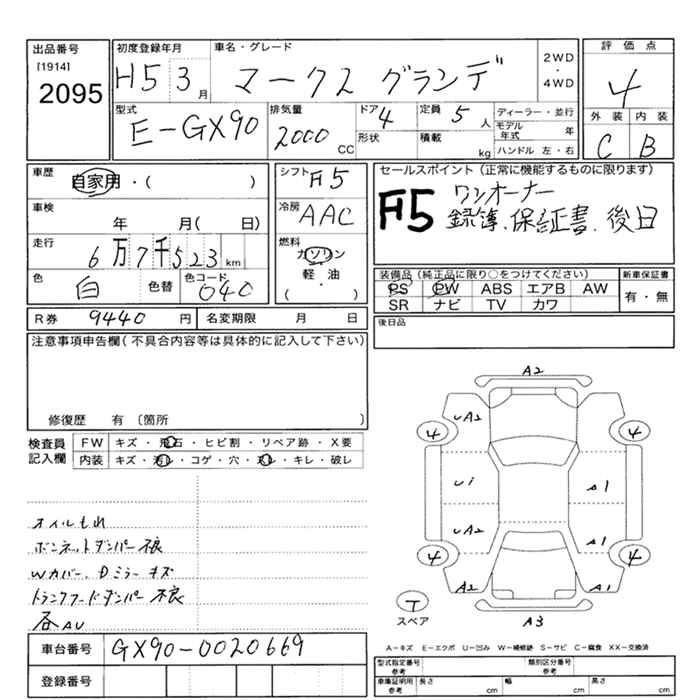 出品番号
[1914]
2095
初度登録年月
H5 3 月
車名・グレード
マークス グランデ
2WD
・
4WD
評価点
4
外装 内装
C B
型式
E-GX90
排気量
2000 CC
ドア 4
形状
定員 5 人
積載 kg
ディーラー・並行
モデル年式 年
ハンドル 左・右
車歴
自家用・( )
車検
年 月( 日)
走行
6万7千523 km
色
白
色替
色コード
040
シフト
F5
冷房
AAC
燃料
ガソリン
軽・油
・
( )
セールスポイント(正常に機能するものに限ります)
F5 ワンオーナー
録簿、保証書、後日
装備品(純正品に限り○をつけてください)
PS PW ABS エアB AW
SR ナビ TV カワ
新車保証書
有・無
R券 9440 円
名変期限 月 日
後日品
注意事項申告欄(不具合内容等は具体的に記入して下さい)
修復歴 有 〔箇所 〕
検査員
記入欄
FW キズ・飛石・ヒビ割・リペア跡・X要
内装 キズ・汚れ・コゲ・穴・スレ・キレ・破レ
オイルもれ
ボンネットダンパー不良
Wカバー、Dミラーキズ
トランクフードダンパー不良
各AU
A2
UA2
4
4
Ui
A1
UA2
A1
4
4
A2
A1
A3
T
スペア
A-キズ E-エクボ U-凹み W-補修跡 S-サビ C-腐食 XX-交換済
車台番号
GX90-0020669
登録番号
型式指定番号
類別区分番号
車庫証明用 長さ cm 幅 cm 高さ cm